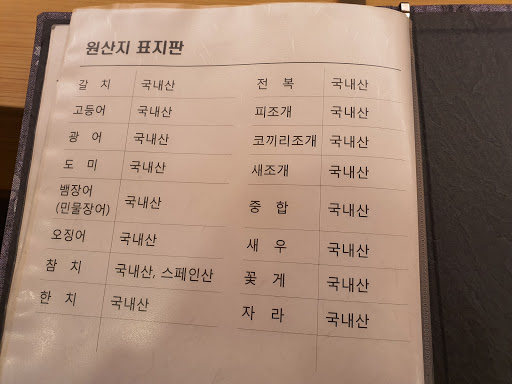 원산지 표지판
갈 치 국내산 전 복 국내산
고등어 국내산 피조개 국내산
광 어 국내산 코끼리조개 국내산
도 미 국내산 새조개 국내산
뱀장어
(민물장어) 국내산 중 합 국내산
오징어 국내산 새 우 국내산
참 치 국내산, 스페인산 꽃 게 국내산
한 치 국내산 자 라 국내산